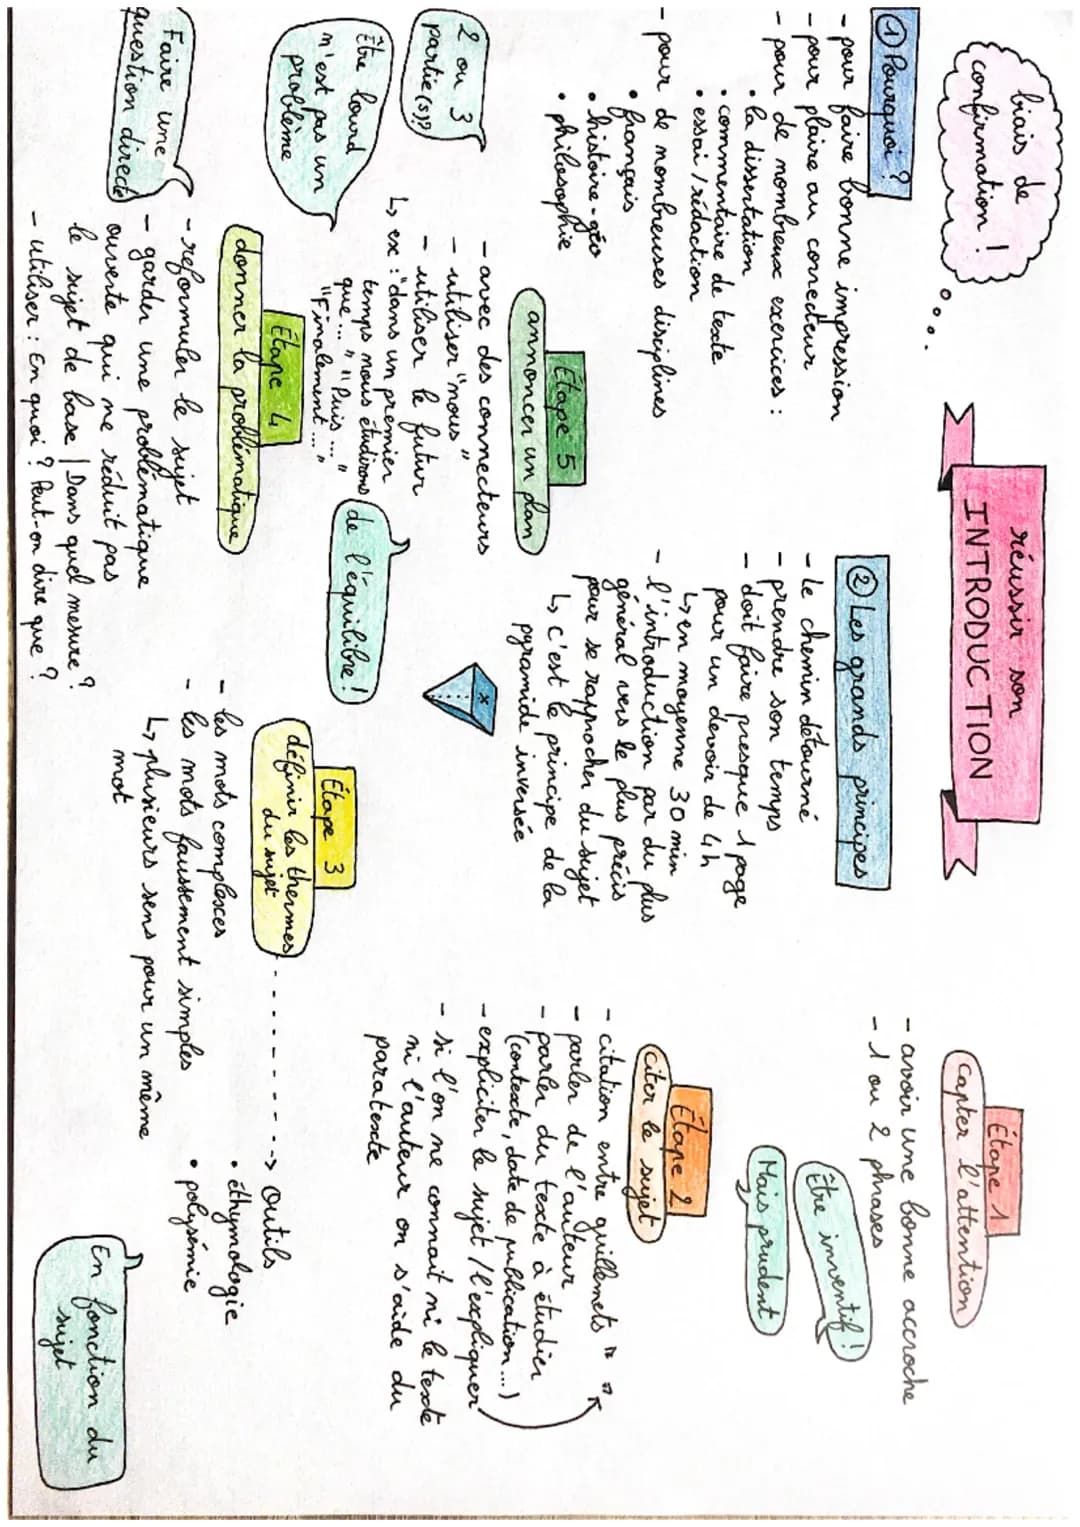 biais de
confirmation !
réussir son
INTRODUCTION
① Pourquoi ?
- pour faire bonne impression
- pour plaire au correcteur
- pour de nombreux exercices :
• la dissertation
• commentaire de texte
• essai / rédaction
- pour de nombreuses disciplines
• français
• histoire-géo
• philosophie
② Les grands principes
- le chemin détourné
- prendre son temps
- doit faire presque 1 page
pour un devoir de 4h
↳ en moyenne 30 min
- l'introduction par du plus
général vers le plus précis
pour se rapprocher du sujet
↳ c'est le principe de la
pyramide inversée
Étape 1
Capter l'attention
- avoir une bonne accroche
- 1 ou 2 phrases
Être inventif !
Mais prudent
Étape 2
citer le sujet
- citation entre guillemets " "
- parler de l'auteur
- parler du texte à étudier
(contexte, date de publication...)
- expliciter le sujet / l'expliquer
- si l'on ne connait ni le texte
ni l'auteur on s'aide du
paratexte
Étape 3
définir les thermes
du sujet
- les mots complexes
- les mots faussement simples
↳ plusieurs sens pour un même
mot
Outils
• éthymologie
• polysémie
En fonction du
sujet
Étape 4
donner la problématique
- reformuler le sujet
- garder une problématique
ouverte qui ne réduit pas
le sujet de base | Dans quel mesure ?
- utiliser : En quoi ? Peut-on dire que ?
Faire une
question directe
Étape 5
annoncer un plan
- avec des connecteurs
- utiliser "nous"
- utiliser le futur
↳ ex : "dans un premier
temps nous étudirons
que ... " "Puis ... "
"Finalement ... "
2 ou 3
partie(s)?
Être lourd
n'est pas un
problème
de l'équilibre !